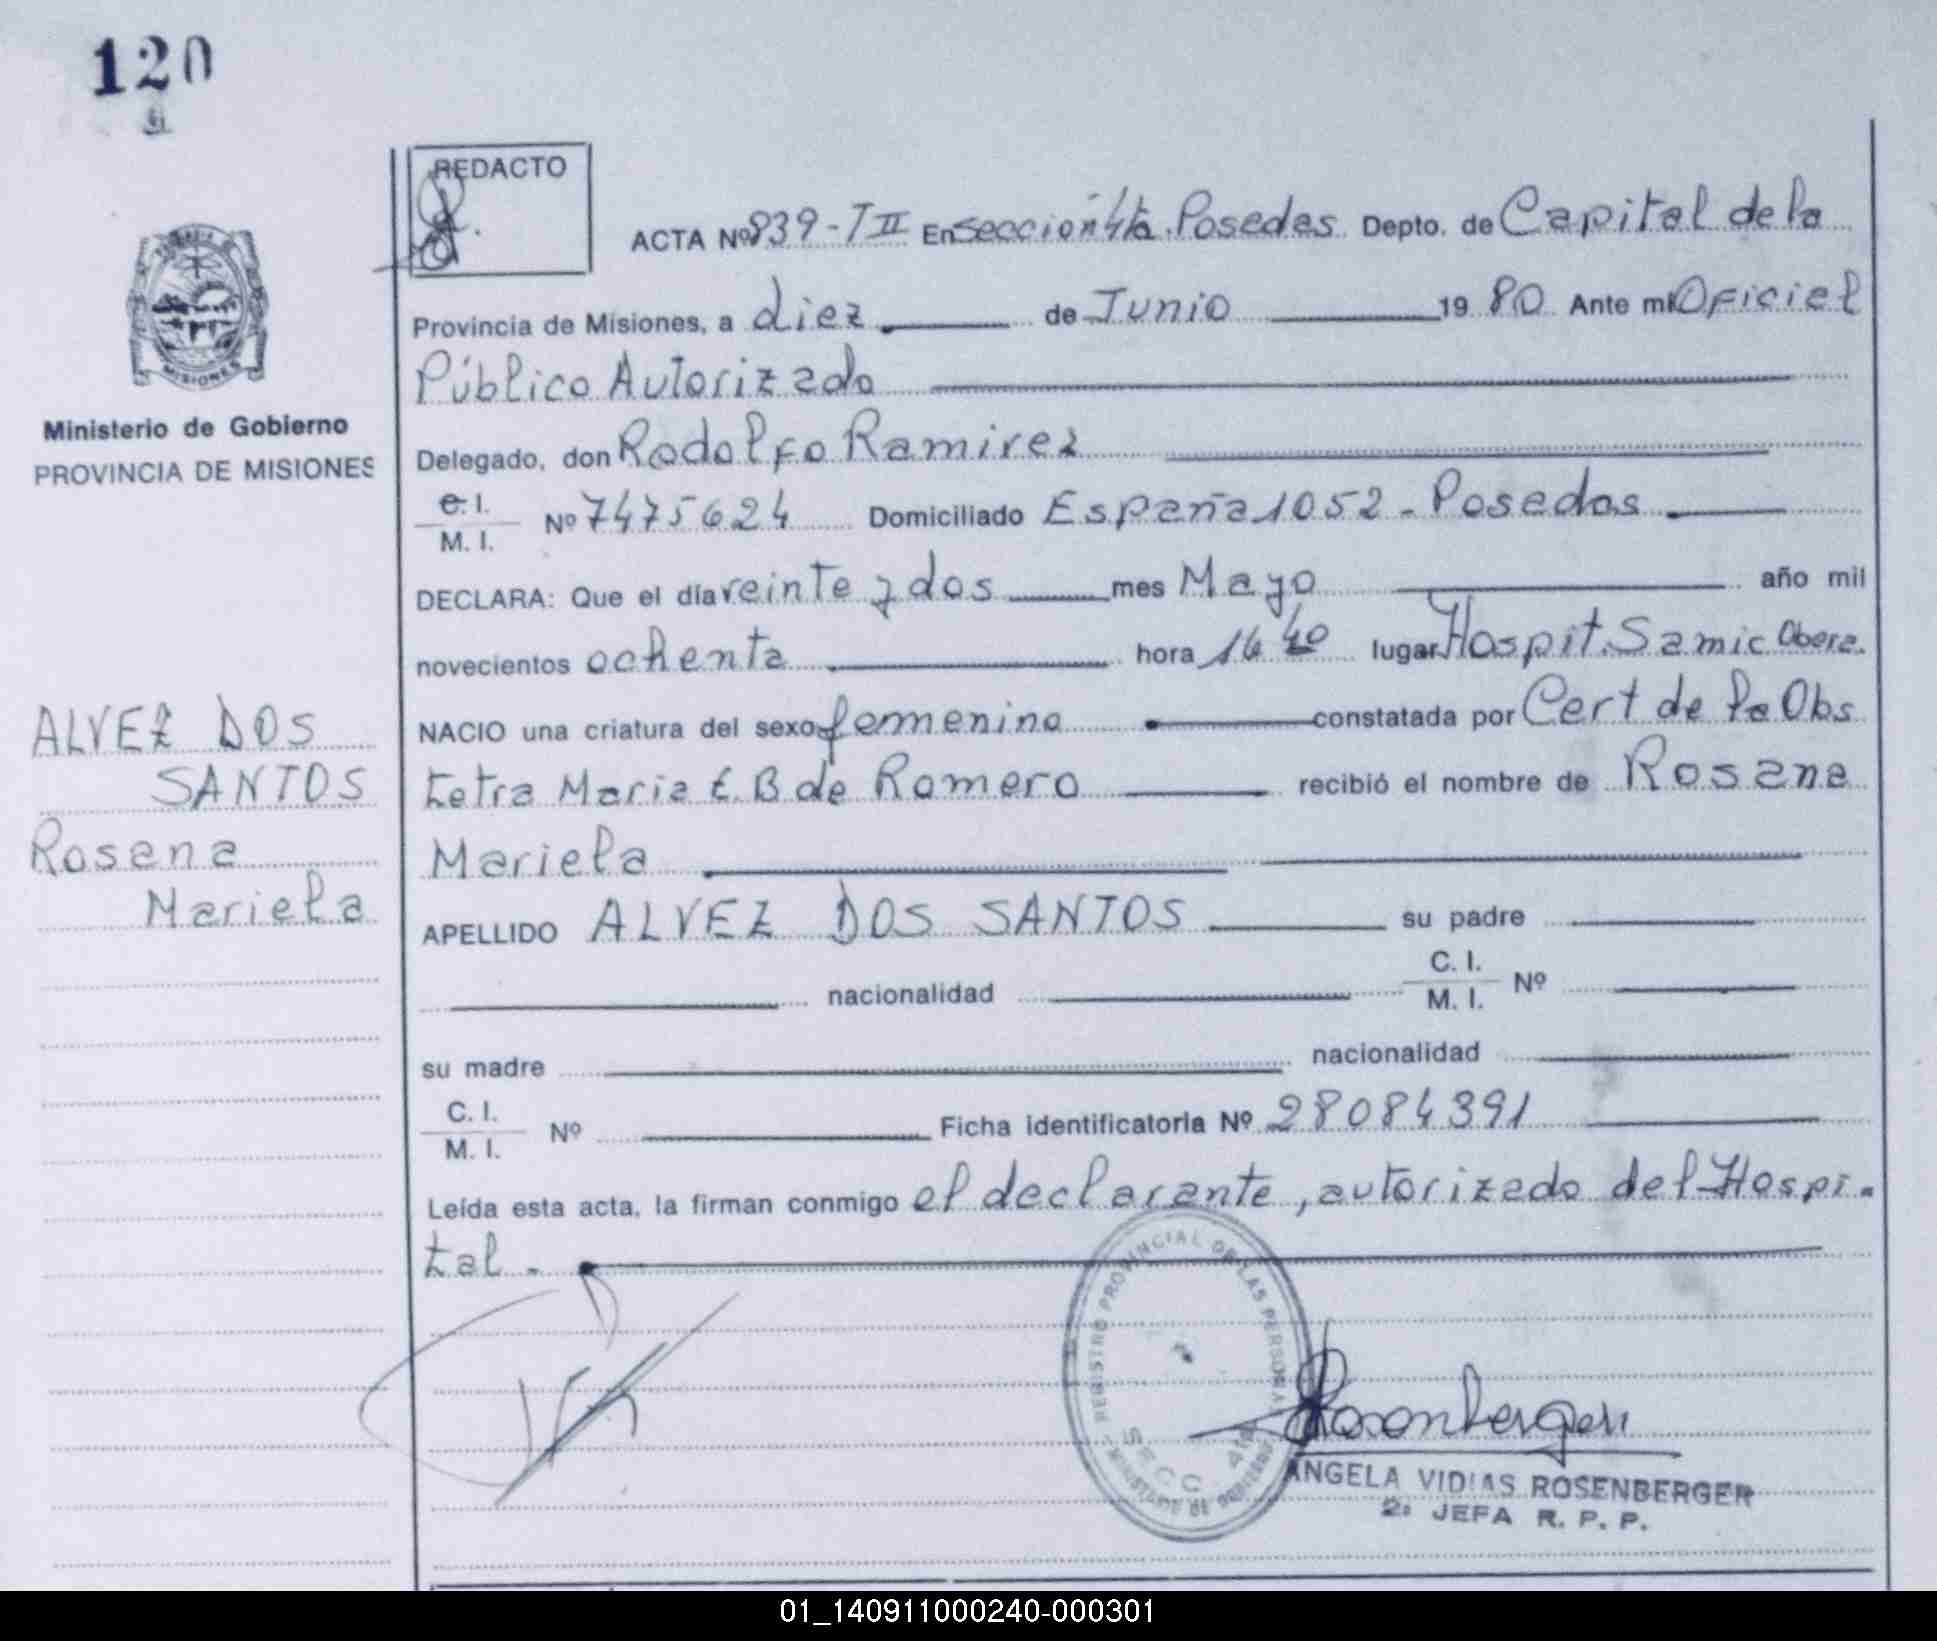 120
REDACTO
ACTA Nº 839-T II En Sección 4ta. Posadas Depto. de Capital de la
Provincia de Misiones, a diez de Junio 19 80 Ante mi Oficial
Público Autorizado
Delegado, don Rodolfo Ramirez
C. I.
M. I.
Nº 7475624 Domiciliado España 1052 - Posadas
DECLARA: Que el día veinte y dos mes Mayo año mil
novecientos ochenta hora 16 40 lugar Hospit. Samic Obera.
NACIO una criatura del sexo femenino constatada por Cert de la Obs
tetra Maria E. B de Romero recibió el nombre de Rosana
Mariela
APELLIDO ALVEZ DOS SANTOS su padre
nacionalidad
C. I.
M. I.
Nº
su madre nacionalidad
C. I.
M. I.
Nº Ficha identificatoria Nº 28084391
Leída esta acta, la firman conmigo el declarante, autorizado del Hospi-
tal.
MISIONES
Ministerio de Gobierno
PROVINCIA DE MISIONES
ALVEZ DOS
SANTOS
Rosana
Mariela
REGISTRO PROVINCIAL DE LAS PERSONAS
MINISTERIO DE GOBIERNO
SECC. 4ta
Rosenberger
ANGELA VIDIAS ROSENBERGER
2ª JEFA R. P. P.
01_140911000240-000301